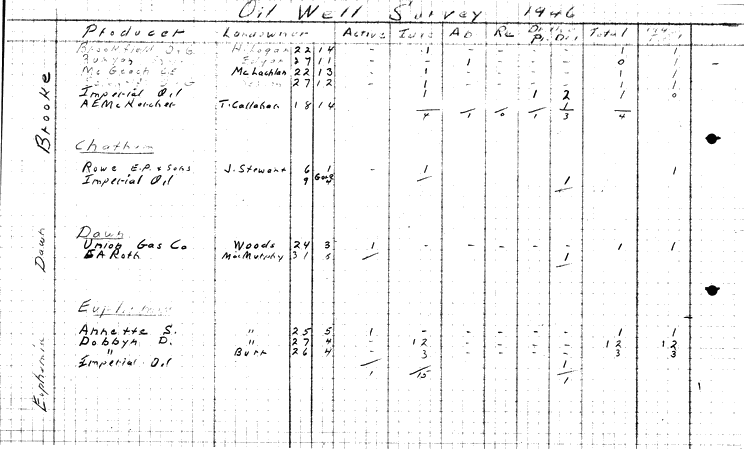 Oil Well Survey 1946
Producer Landowner Active Ab Re Total
Brookfield J.G H. Logan 22 14 - 1 - - - - 1 1
Edgar 27 11 - - 1 - - - 0 1
Mc Geach McLachlan 22 13 - 1 - - - - 1 1
27 12 - 1 - - - - 1 1
Imperial Oil 1 1 2 1 0
A E McKercher T. Callahan 18 14 1
4 1 0 1 3 4
Brooke
Chatham
Rowe E.P. & Sons J. Stewart 6 1 - 1 1
Imperial Oil 9 1
Dawn
Dawn
Union Gas Co Woods 24 3 1 - - - - - 1 1
E A Roth MacMurphy 31 5 1
Euphemia
Annette S. " 25 5 1 - - - - - 1 1
Dobbyn D. " 27 4 - 12 - - - - 12 12
" Burr 26 4 - 3 - - - - 3 3
Imperial Oil 1
1 15 1
Euphemia